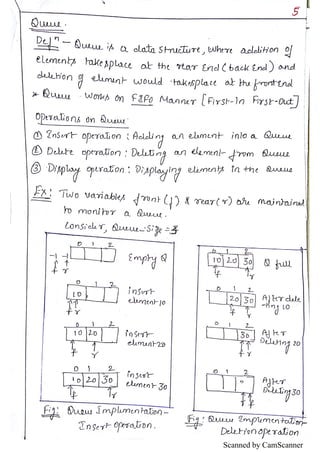 5
Queue.
Defn - Queue is a data structure, where addition of
elements takesplace at the rear end (back End) and
deletion of element would takesplace at the frontend
* Queue works on FIFO Manner [First-In First-Out]
Operations on Queue
① Insert operation : Adding an element into a Queue
② Delete operation : Deleting an element from Queue
③ Display operation : Displaying elements in the Queue
Ex: Two variables front(f) & rear(r) are maintained
to monitor a Queue.
Consider, Queue-Size = 3
0 1 2
-1 -1
f r
Empty Q
0 1 2
10
f r
Insert
element 10
0 1 2
10 20
f r
Insert
element 20
0 1 2
10 20 30
f r
Insert
element 30
Fig: Queue Implementation-
Insert operation.
0 1 2
10 20 30
f r
Q full
0 1 2
20 30
f r
After dele
-ting 10
0 1 2
30
f r
After
Deleting 20
0 1 2
f r
After
Deleting 30
Fig: Queue Implementation-
Deletion operation
Scanned by CamScanner